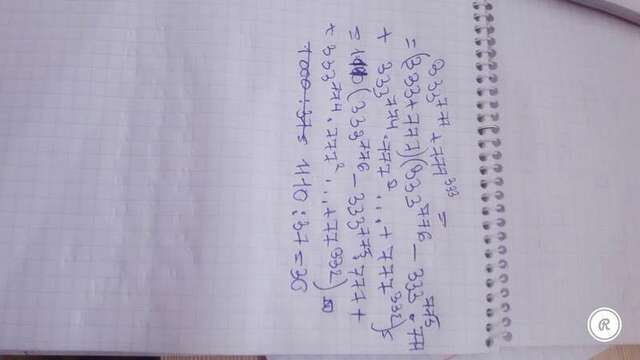 333⁷⁷⁷ + 777³³³ =
= (333+777)(333⁷⁷⁶ − 333⁷⁷⁵ · 777
+ 333⁷⁷⁴ · 777² ... + 777³³²) =
= 1110 (333⁷⁷⁶ − 333⁷⁷⁵ 777 +
+ 333⁷⁷⁴ · 777² ... + 77³³²)
1110 : 37 = 30
R